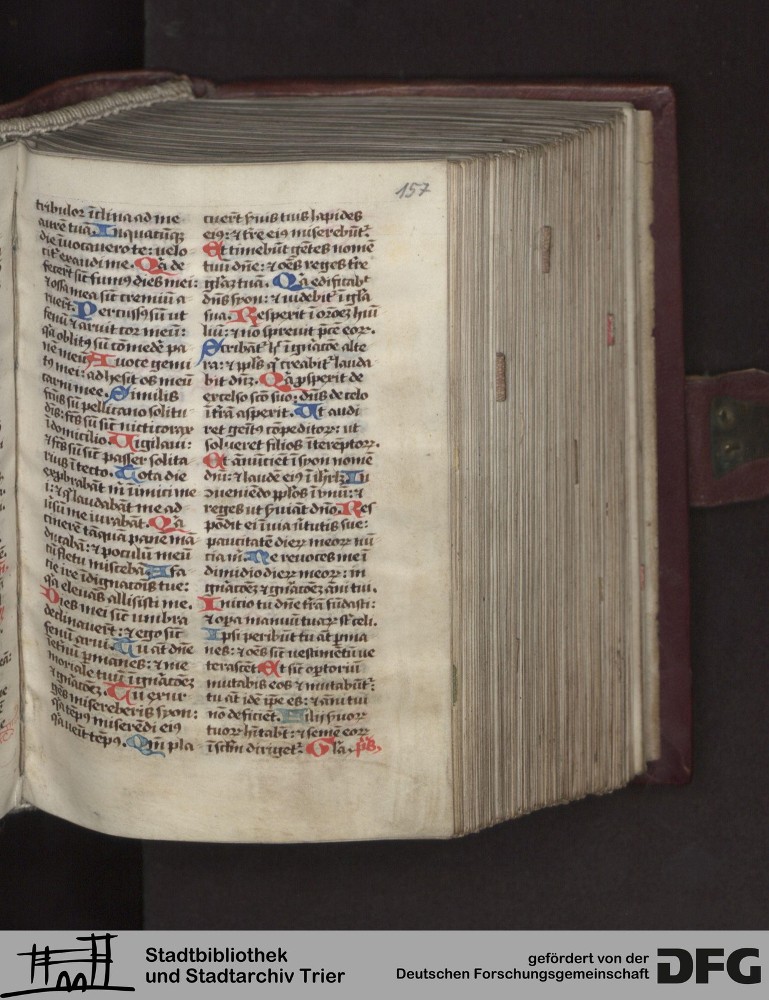 157
tribulor ĩclina ad me
aurẽ tuã. In quacũqꝫ
die ĩuocauero te: uelo
cit̾ exaudi me. Q̃a de
fecert̃ sic̃ fumꝰ dies mei:
⁊ ossa mea sic̃ cremiũ a
ruert̃. Percussꝰ sũ ut
fenũ ⁊ aruit cor meũ:
q̃a oblitꝰ sũ cõmedẽ pa
nẽ meũ. A uoce gemi
tꝰ mei: adhesit os meũ
carni mee. Similis
fc̃us sũ pellicano solitu
dĩs: fc̃s sũ sic̃ nicticorax
ĩ domicilio. Vigilaui:
⁊ fc̃s sũ sic̃ passer solita
rius ĩ tecto. Tota die
exp̱brabãt m̃ inimici mei
: ⁊ q̃ laudabãt me ad
u̾sũ me iurabãt. Q̃a
cinerẽ tãquã panẽ mã
ducabã: ⁊ poculũ meũ
cũ fletu miscebã. A fa
cie ire ĩdignatõis tue:
q̃a eleuãs allisisti me.
Dies mei sic̃ umbra
declinauert̃: ⁊ ego sic̃
fenũ arui. Tu aũt dñe
ĩ et̾nũ ꝑmanes: ⁊ me
moriale tuũ ĩ gñatõeꝫ
⁊ gñatõeꝫ. Tu exur
gẽs misereberis syon:
q̃a tẽpꝰ miserẽdi eiꝰ
q̃a ueĩt tẽpꝰ. Qm̃ pla
cuert̃ s̾uis tuis lapides
eiꝰ: ⁊ t̾re eiꝰ miserebũt̾.
Et timebũt gẽtes nomẽ
tuũ dñe: ⁊ oẽs reges t̾re
gl̃aꝫ tuã. Q̃a edificabt̾
dñs syon: ⁊ uidebit̾ ĩ gl̃a
sua. Respexit ĩ oroẽꝫ hũi
liũ: ⁊ nõ spreuit p̾cẽ eoꝝ.
Scribãt̾ h̾ ĩ gñatõe alte
ra: ⁊ ppl̃s q̾ creabit̾ lauda
bit dñꝫ. Q̃a ꝓspexit de
excelso sc̃o suo: dñs de celo
ĩ t̾rã aspexit. Ut audi
ret gemitꝰ cõpeditoꝝ: ut
solueret filios ĩt̾emptoꝝ.
Et ãnũciẽt ĩ syon nomẽ
dñi: ⁊ laudẽ eiꝰ ĩ ihrl̃ꝫ. In
ↄueniẽdo ppl̃os ĩ unũ: ⁊
reges ut s̾uiãt dño. Res
põdit ei ĩ uia ũtutis sue:
paucitatẽ dieꝝ meoꝝ nũ
cia m̃. Ne reuoces me ĩ
dimidio dieꝝ meoꝝ: in
gñatõeꝫ ⁊ gñatõeꝫ ãni tui.
Inicio tu dñe t̾rã fũdasti:
⁊ opa manuũ tuaꝝ st̃ celi.
Ipsi peribũt tu aũt ꝑma
nes: ⁊ oẽs sic̃ uestimẽtũ ue
terascẽt. Et sic̃ optoriũ
mutabis eos ⁊ mutabũt̾:
tu aũt idẽ ip̃e es: ⁊ ãni tui
nõ deficiẽt. Filii s̾uoꝝ
tuoꝝ hĩtabt̾: ⁊ semẽ eoꝝ
ĩ sc̃lm diriget̾. Gl̃a. ps̃.
Stadtbibliothek
und Stadtarchiv Trier
gefördert von der
Deutschen Forschungsgemeinschaft
DFG